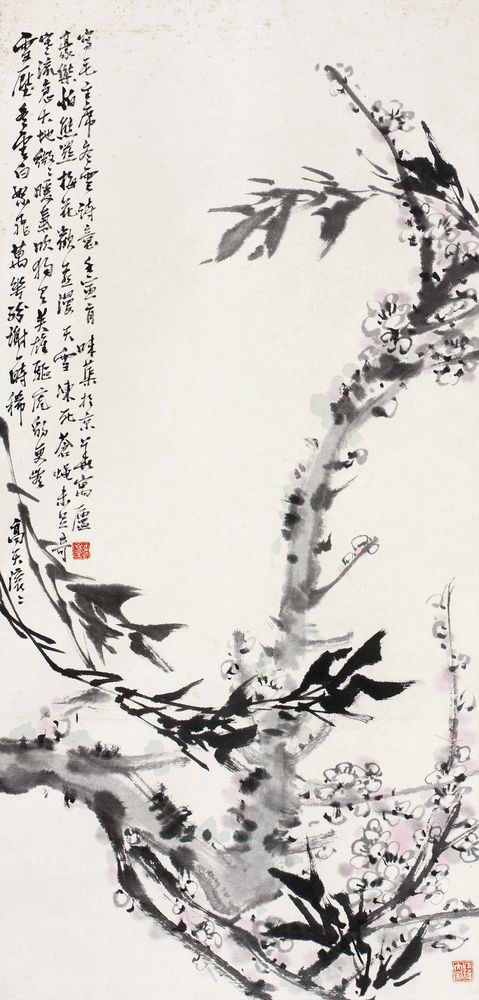 雪壓冬雲白絮飛萬花紛謝一時稀
高天滾〻
寒流急大地微〻暖氣吹獨有英雄驅虎豹更無
豪傑怕熊羆梅花歡喜漫天雪凍死蒼蠅未足奇
寫毛主席冬雲詩意壬寅 味蕖於京華寓廬